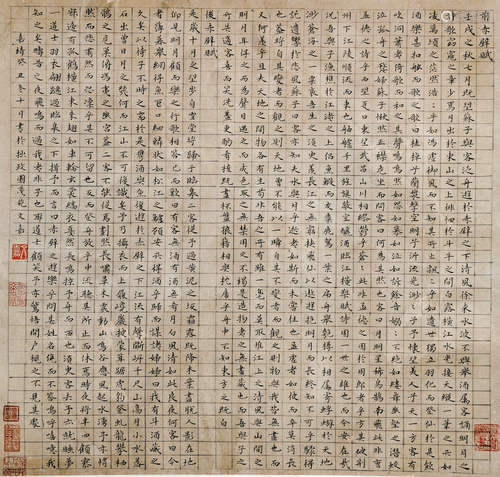 前赤壁賦
壬戌之秋七月既望蘇子與客泛舟遊於赤壁之下清風徐來水波不興舉酒屬客誦明月之
詩歌窈窕之章少焉月出於東山之上徘徊於斗牛之間白露橫江水光接天縱一葦之所如
凌萬頃之茫然浩浩乎如馮虛御風而不知其所止飄飄乎如遺世獨立羽化而登仙於是飲
酒樂甚扣舷而歌之歌曰桂棹兮蘭槳擊空明兮泝流光渺渺兮予懷望美人兮天一方客有
吹洞簫者倚歌而和之其聲嗚嗚然如怨如慕如泣如訴餘音嫋嫋不絕如縷舞幽壑之潛蛟
泣孤舟之嫠婦蘇子愀然正襟危坐而問客曰何為其然也客曰月明星稀烏鵲南飛此非曹
孟德之詩乎西望夏口東望武昌山川相繆鬱乎蒼蒼此非孟德之困於周郎者乎方其破荊
州下江陵順流而東也舳艫千里旌旗蔽空釃酒臨江橫槊賦詩固一世之雄也而今安在哉
況吾與子漁樵於江渚之上侶魚蝦而友麋鹿駕一葉之扁舟舉匏樽以相屬寄蜉蝣於天地
渺滄海之一粟哀吾生之須臾羨長江之無窮挾飛仙以遨遊抱明月而長終知不可乎驟得
託遺響於悲風蘇子曰客亦知夫水與月乎逝者如斯而未嘗往也盈虛者如彼而卒莫消長
也蓋將自其變者而觀之則天地曾不能以一瞬自其不變者而觀之則物與我皆無盡也而
又何羨乎且夫天地之間物各有主苟非吾之所有雖一毫而莫取惟江上之清風與山間之
明月耳得之而為聲目遇之而成色取之無禁用之不竭是造物者之無盡藏也而吾與子之
所共適客喜而笑洗盞更酌肴核既盡杯盤狼藉相與枕藉乎舟中不知東方之既白
後赤壁賦
是歲十月之望步自雪堂將歸于臨皋二客從予過黃泥之坂霜露既降木葉盡脫人影在地
仰見明月顧而樂之行歌相答已而歎曰有客無酒有酒無肴月白風清如此良夜何客曰今
者薄暮舉網得魚巨口細鱗狀如松江之鱸顧安所得酒乎歸而謀諸婦婦曰我有斗酒藏之
久矣以待子不時之需於是攜酒與魚復遊於赤壁之下江流有聲斷岸千尺山高月小水落
石出曾日月之幾何而江山不可復識矣予乃攝衣而上履巉巖披蒙茸踞虎豹登虬龍攀栖
鶻之危巢俯馮夷之幽宮蓋二客不能從焉劃然長嘯草木震動山鳴谷應風起水涌予亦悄
然而悲肅然而恐凜乎其不可留也反而登舟放乎中流聽其所止而休焉時夜將半四顧寂
寥適有孤鶴橫江東來翅如車輪玄裳縞衣戛然長鳴掠予舟而西也須臾客去予亦就睡夢
一道士羽衣翩躚過臨皋之下揖予而言曰赤壁之遊樂乎問其姓名俛而不答嗚呼噫嘻我
知之矣疇昔之夜飛鳴而過我者非子也耶道士顧笑予亦驚悟開戶視之不見其處
嘉靖癸丑冬十月書於拙政園文嘉